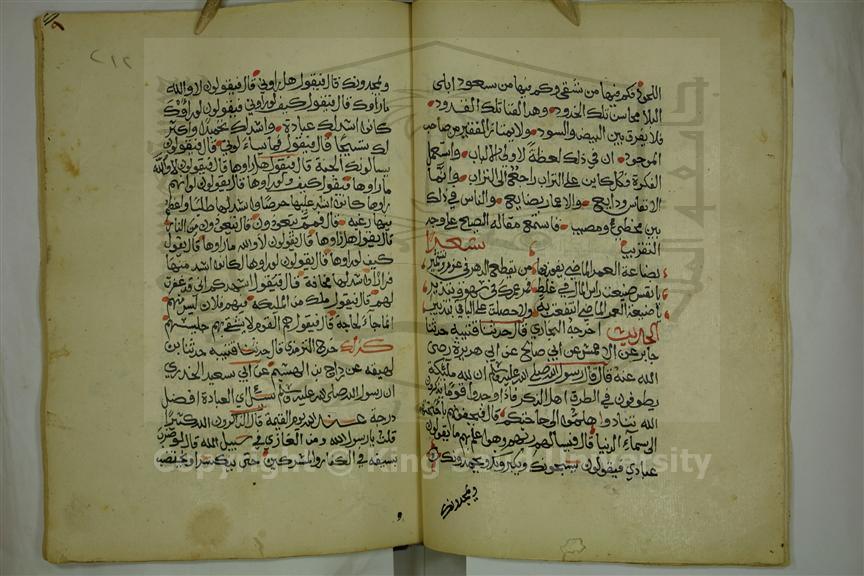 اللحود فكم فيها من شقى وكم فيها من سعود ابلى
البلا محاسن تلك الخدود وهدا الفنا تلك القدود
فلا يفرق بين البيض والسود ولا يمتاز الفقير من صاحب
الموجود ان في ذلك لعظة لاولى الالباب
الفكرة فكل كاين على التراب راجع الى التراب وانما
الانفاس ودايع والاعمار بضايع والناس في ذلك
بين مخطئ ومصيب فاسمع مقاله الصحيح على وجه
التقريب شعر
بضاعة العمر الماضي
راس المال في غلط
ضيعة العمر الماضي
الحديث اخرجه البخاري قال حدثنا قتيبة حدثنا
جابر عن الاعمش عن ابي صالح عن ابي هريرة رضى
الله عنه قال قال رسول الله صلى الله عليه وسلم ان لله ملئكة
يطوفون في الطرق اهل الذكر فاذا وجدوا قوما يذكرون
الله تنادوا هلموا الى حاجتكم قال فيحفونهم باجنحتهم
الى سماء الدنيا قال فيسألهم ربهم وهو اعلم بهم ما يقولون
عبادي فيقولون يسبحونك ويكبرونك ويحمدونك
ويمجدونك
٢١٢
ويمجدونك قال فيقول هل راوني قال فيقولون لا والله
ما راوك قال فيقول كيف لو راوني فيقولون لو راوك
كانوا اشد لك عبادة واشد لك تمجيدا واكثر
لك تسبيحا قال فيقول فما يسالوني قال فيقولون
يسالونك الجنة قال فيقول هل راوها قال فيقولون لا والله
ما راوها فيقول كيف لو راوها قال فيقولون لو انهم
راوها كانوا اشد عليها حرصا واشد لها طلبا واعظم
فيها رغبة قال فمم يتعوذون قال يتعوذون من النار
قال فيقول هل راوها قال يقولون لا والله ما راوها قال يقول
كيف لو راوها قال يقولون لو راوها لكانوا اشد منها
فرارا واشد لها مخافة قال فيقول اشهدكم اني قد غفرت
لهم قال فيقول ملك من الملئكة فيهم فلان ليس منهم
انما جاء لحاجة قال فيقول هم القوم لا يشقى بهم جليسهم
خرج الترمذي قال حدثنا قتيبة حدثنا بن
لهيعة عن دراج بن الهيثم عن ابي سعيد الخدري
ان رسول الله صلى الله عليه وسلم سئل اي العبادة افضل
درجة عند الله يوم القيمة قال الذاكرون الله كثيرا
قلت يا رسول الله ومن الغازي في سبيل الله قال لو ضرب
بسيفه في الكفار والمشركين حتى ينكسر ويختضب
Copyright © King Saud University
جامعة الملك سعود